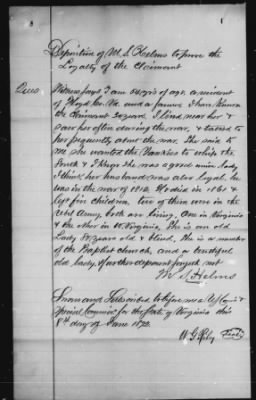 Deposition of M. S. Helms to prove the
Loyalty of the Claimant
Ques.
Witness says I am 54 yrs of age, a resident
of Floyd Co. Va. and a farmer I have known
the claimant 30 years, I lived near her &
saw her often during the war, & talked to
her frequently about the war. She said to
me she wanted the Yankees to whip the
South & I know she was a good union lady,
I think her husband was also loyal. he
was in the war of 1812. He died in 1861 &
left five children, two of them were in the
Rebel Army, both are living. One in Virginia
& the other in W. Virginia, She is an old
Lady 80 years old & blind, She is a member
of the Baptist church, and a beautiful
old lady. & further deponent sayeth not
M. S. Helms
Sworn and Subscribed before me a US Com &
Special Commr for the State of Virginia this
8th day of June 1872.